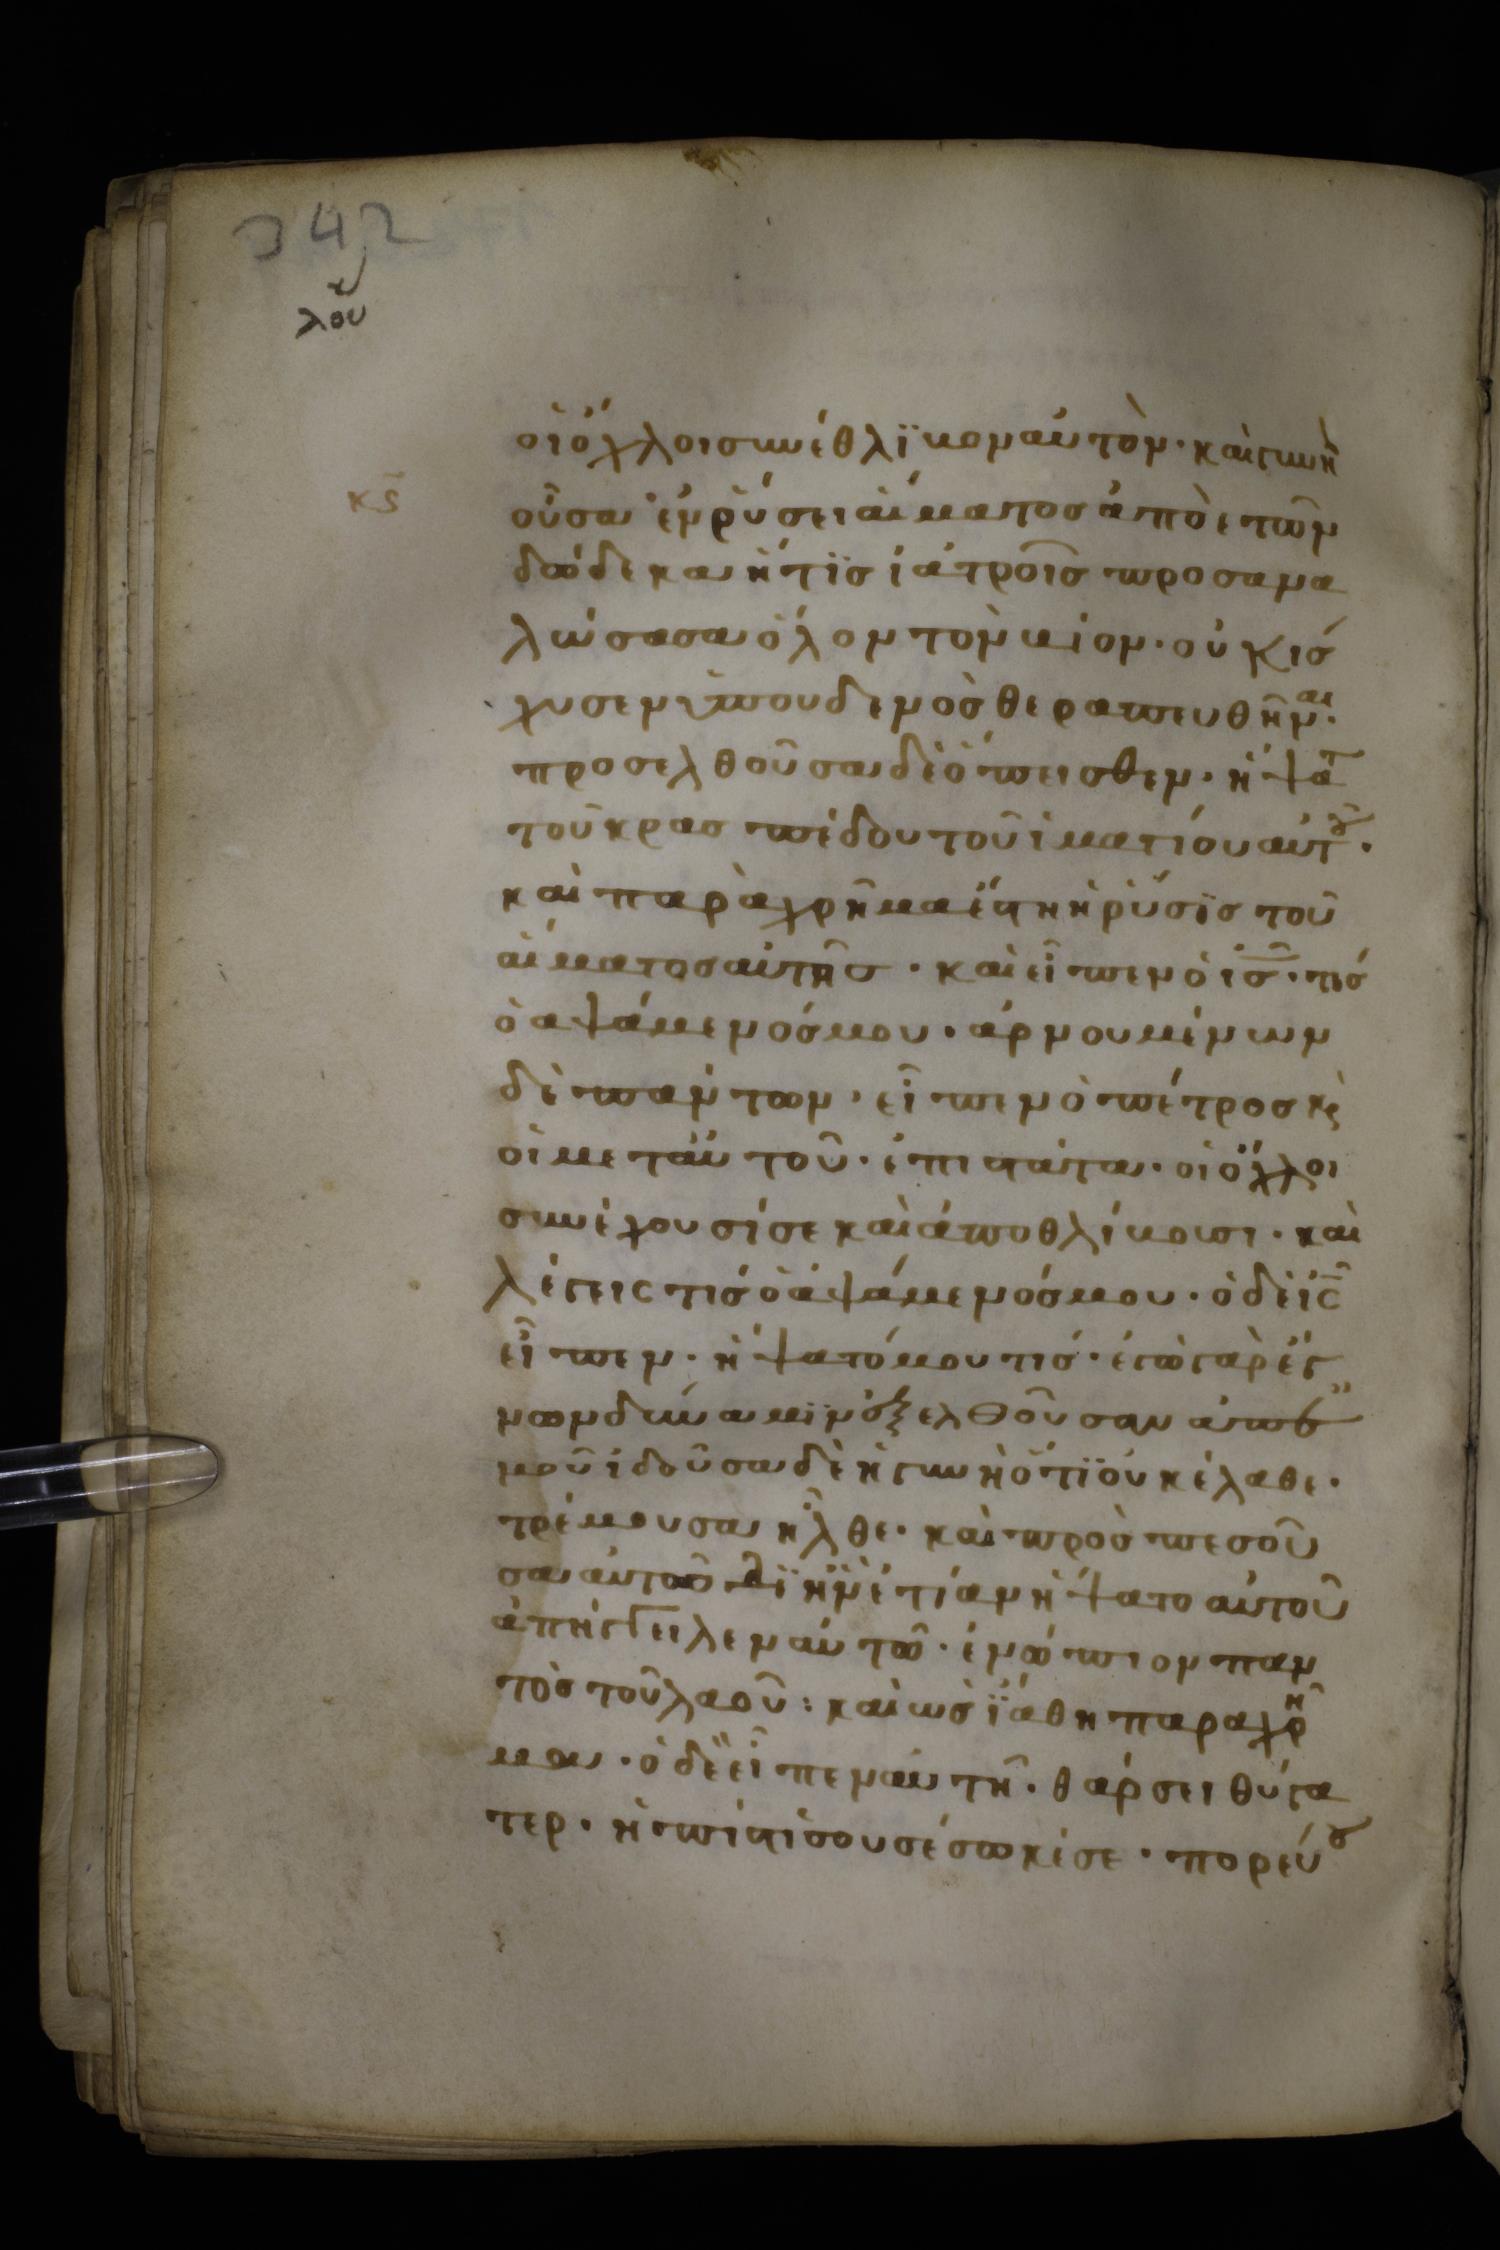 342
λου
οἱ ὄχλοι συνέθλϊβον αὐτὸν · καὶ γυνὴ
κς οὖσα ἐν ῥύσει αἵματος ἀπὸ ἐτῶν
δώδεκα ἥτϊς ἰατροῖς προσανα
λώσασα ὅλον τὸν βίον · οὐκ ἴσ
χυσεν ὑπ οὐδενὸς θεραπευθῆναι ·
προσελθοῦσα δὲ ὄπεισθεν · ἥψατ
τοῦ κρασπέδου τοῦ ἱματίου αὐτοῦ ·
καὶ παρὰχρῆμα ἔστη ἡ ῥύσϊς τοῦ
αἵματος αὐτῆς · καὶ εἶπεν ὁ ις · τίς
ὁ αψάμενός μου · ἀρνουμένων
δὲ πάντων · εἶπεν ὁ πέτρος κὲ
οἱ μετ αὐτοῦ · ἐπιστάτα · οἱ ὄχλοι
συνέχουσί σε καὶ ἀποθλίβουσι · καὶ
λέγεις τίς ὁ ἁψάμενός μου · ὁ δὲ ις
εἶπεν · ἥψατό μου τίς · ἐγὼ γὰρ ἔγ
νων δύναμϊν ἐξελθοῦσαν ἀπ ἐ
μοῦ ἰδοῦσα δὲ ἡ γυνὴ ὅτϊ οὐκ ἔλαθε ·
τρέμουσα ἦλθε · καὶ πρὸσπεσοῦ
σα αὐτοῦ δϊ ἣν αἰτίαν ἥψατο αὐτοῦ
ἀπήγγειλεν αὐτῶ · ἐνώπιον παν
τὸς τοῦ λαοῦ : καὶ ὡς ϊάθη παραχρῆ
μα · ὁ δὲ εἶπεν αὐτῆ · θάρσει θύγα
τερ · ἡ πίστις σου σέσωκέ σε · πορεύου